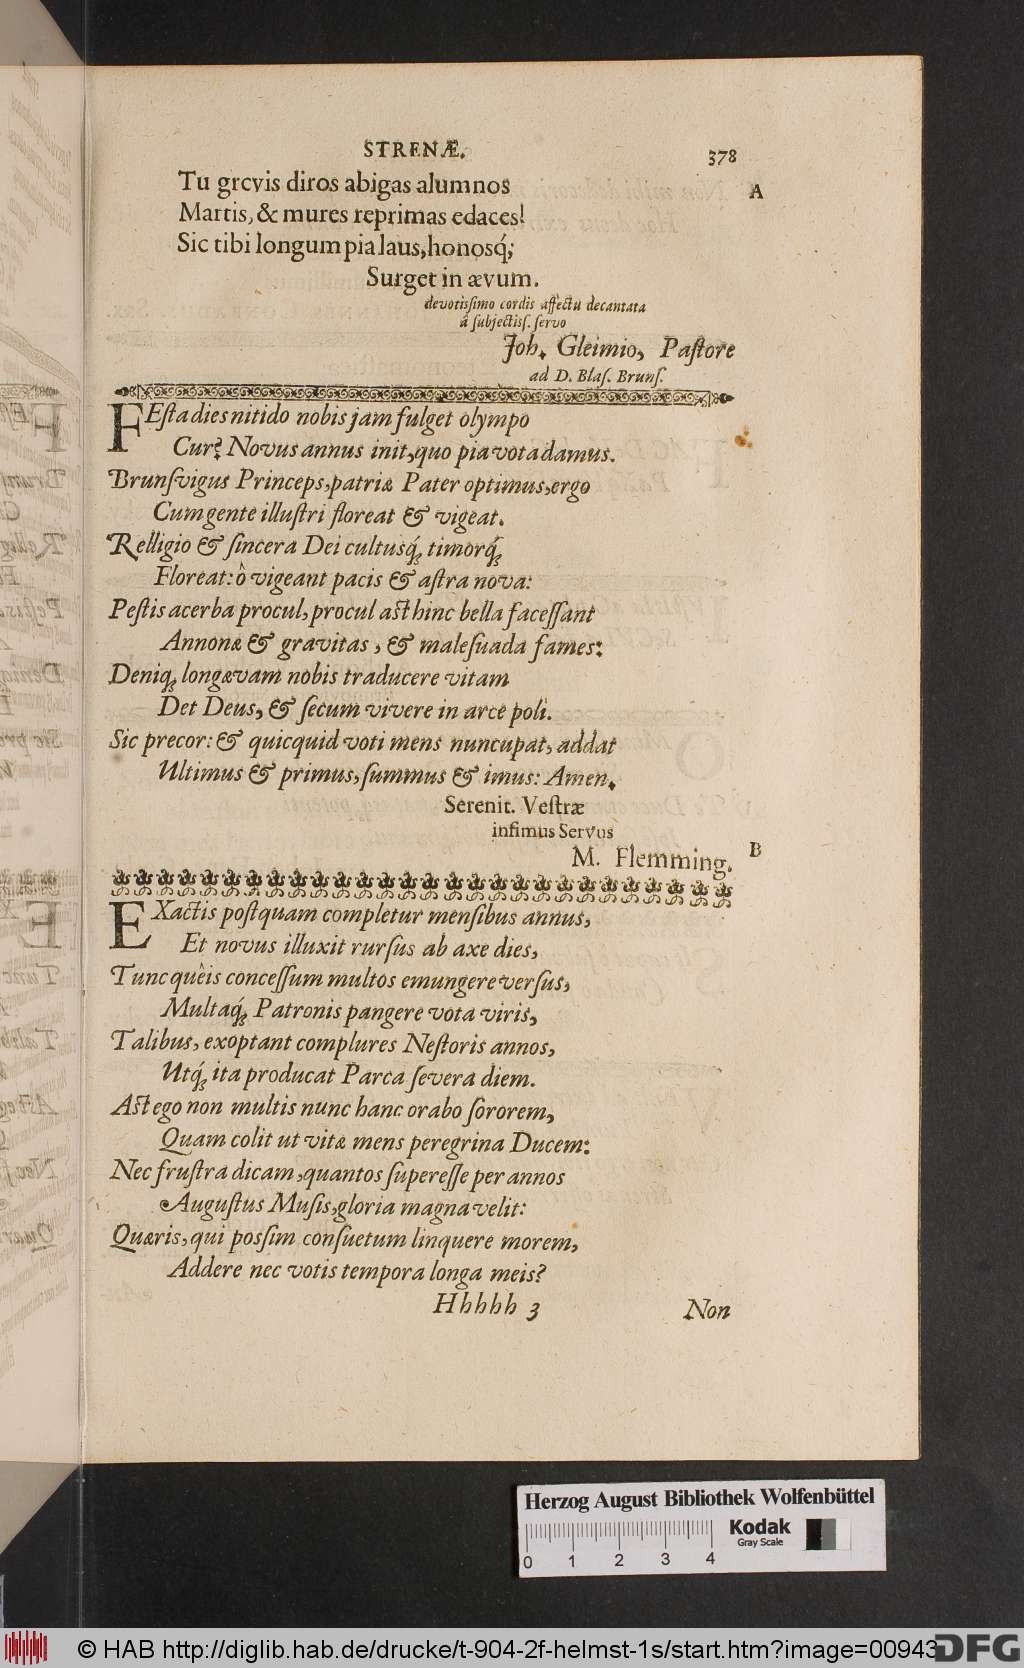 STRENÆ. 378
Tu grcvis diros abigas alumnos A
Martis, & mures reprimas edaces!
Sic tibi longum pia laus, honosq́;
Surget in ævum.
devotiſſimo cordis affectu decantata
â ſubjectiſſ. ſervo
Joh. Gleimio, Paſtore
ad D. Blaſ. Brunſ.
FEſta dies nitido nobis jam fulget olympo
Cur? Novus annus init, quo pia vota damus.
Brunſvigus Princeps, patriæ Pater optimus, ergo
Cum gente illuſtri floreat & vigeat.
Relligio & ſincera Dei cultusq́; timorq́;
Floreat: ô vigeant pacis & aſtra nova:
Peſtis acerba procul, procul aſt hinc bella faceſſant
Annonæ & gravitas, & maleſuada fames:
Deniq; longævam nobis traducere vitam
Det Deus, & ſecum vivere in arce poli.
Sic precor: & quicquid voti mens nuncupat, addat
Ultimus & primus, ſummus & imus: Amen.
Serenit. Veſtræ
infimus Servus
M. Flemming. B
EXactis poſtquam completur menſibus annus,
Et novus illuxit rurſus ab axe dies,
Tunc quêis conceſſum multos emungere verſus,
Multaq́; Patronis pangere vota viris,
Talibus, exoptant complures Neſtoris annos,
Utq́; ita producat Parca ſevera diem.
Aſt ego non multis nunc hanc orabo ſororem,
Quam colit ut vitæ mens peregrina Ducem:
Nec fruſtra dicam, quantos ſupereſſe per annos
Auguſtus Muſis, gloria magna velit:
Quæris, qui poſſim conſuetum linquere morem,
Addere nec votis tempora longa meis?
Hhhhh 3 Non
Herzog August Bibliothek Wolfenbüttel
0 1 2 3 4
Kodak
Gray Scale
© HAB http://diglib.hab.de/drucke/t-904-2f-helmst-1s/start.htm?image=00943
DFG